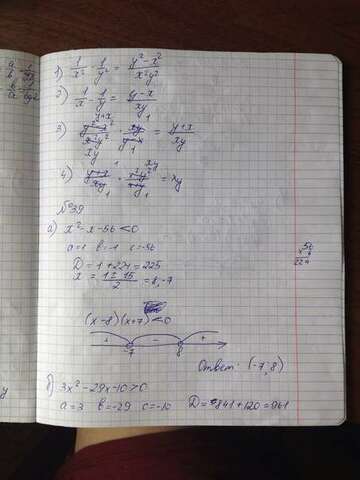 1) 1/x² - 1/y² = (y² - x²)/(x²y²)
2) 1/x - 1/y = (y-x)/(xy)
3) (y²-x²)/(x²y²) · (xy)/(y-x) = (y+x)/(xy)
y+x 1
xy 1
4) (y+x)/(xy) · (x²y²)/(y+x) = xy
1 xy
1 1
№39
а) x² - x - 56 < 0
a=1 b=-1 c=-56
D = 1 + 224 = 225
x = (1 ± 15)/2 = 8; -7
56
× 4
224
(x-8)(x+7) < 0
+ - +
-7 8
Ответ: (-7; 8)
б) 3x² - 29x - 10 > 0
a = 3 b = -29 c = -10 D = 841 + 120 = 961